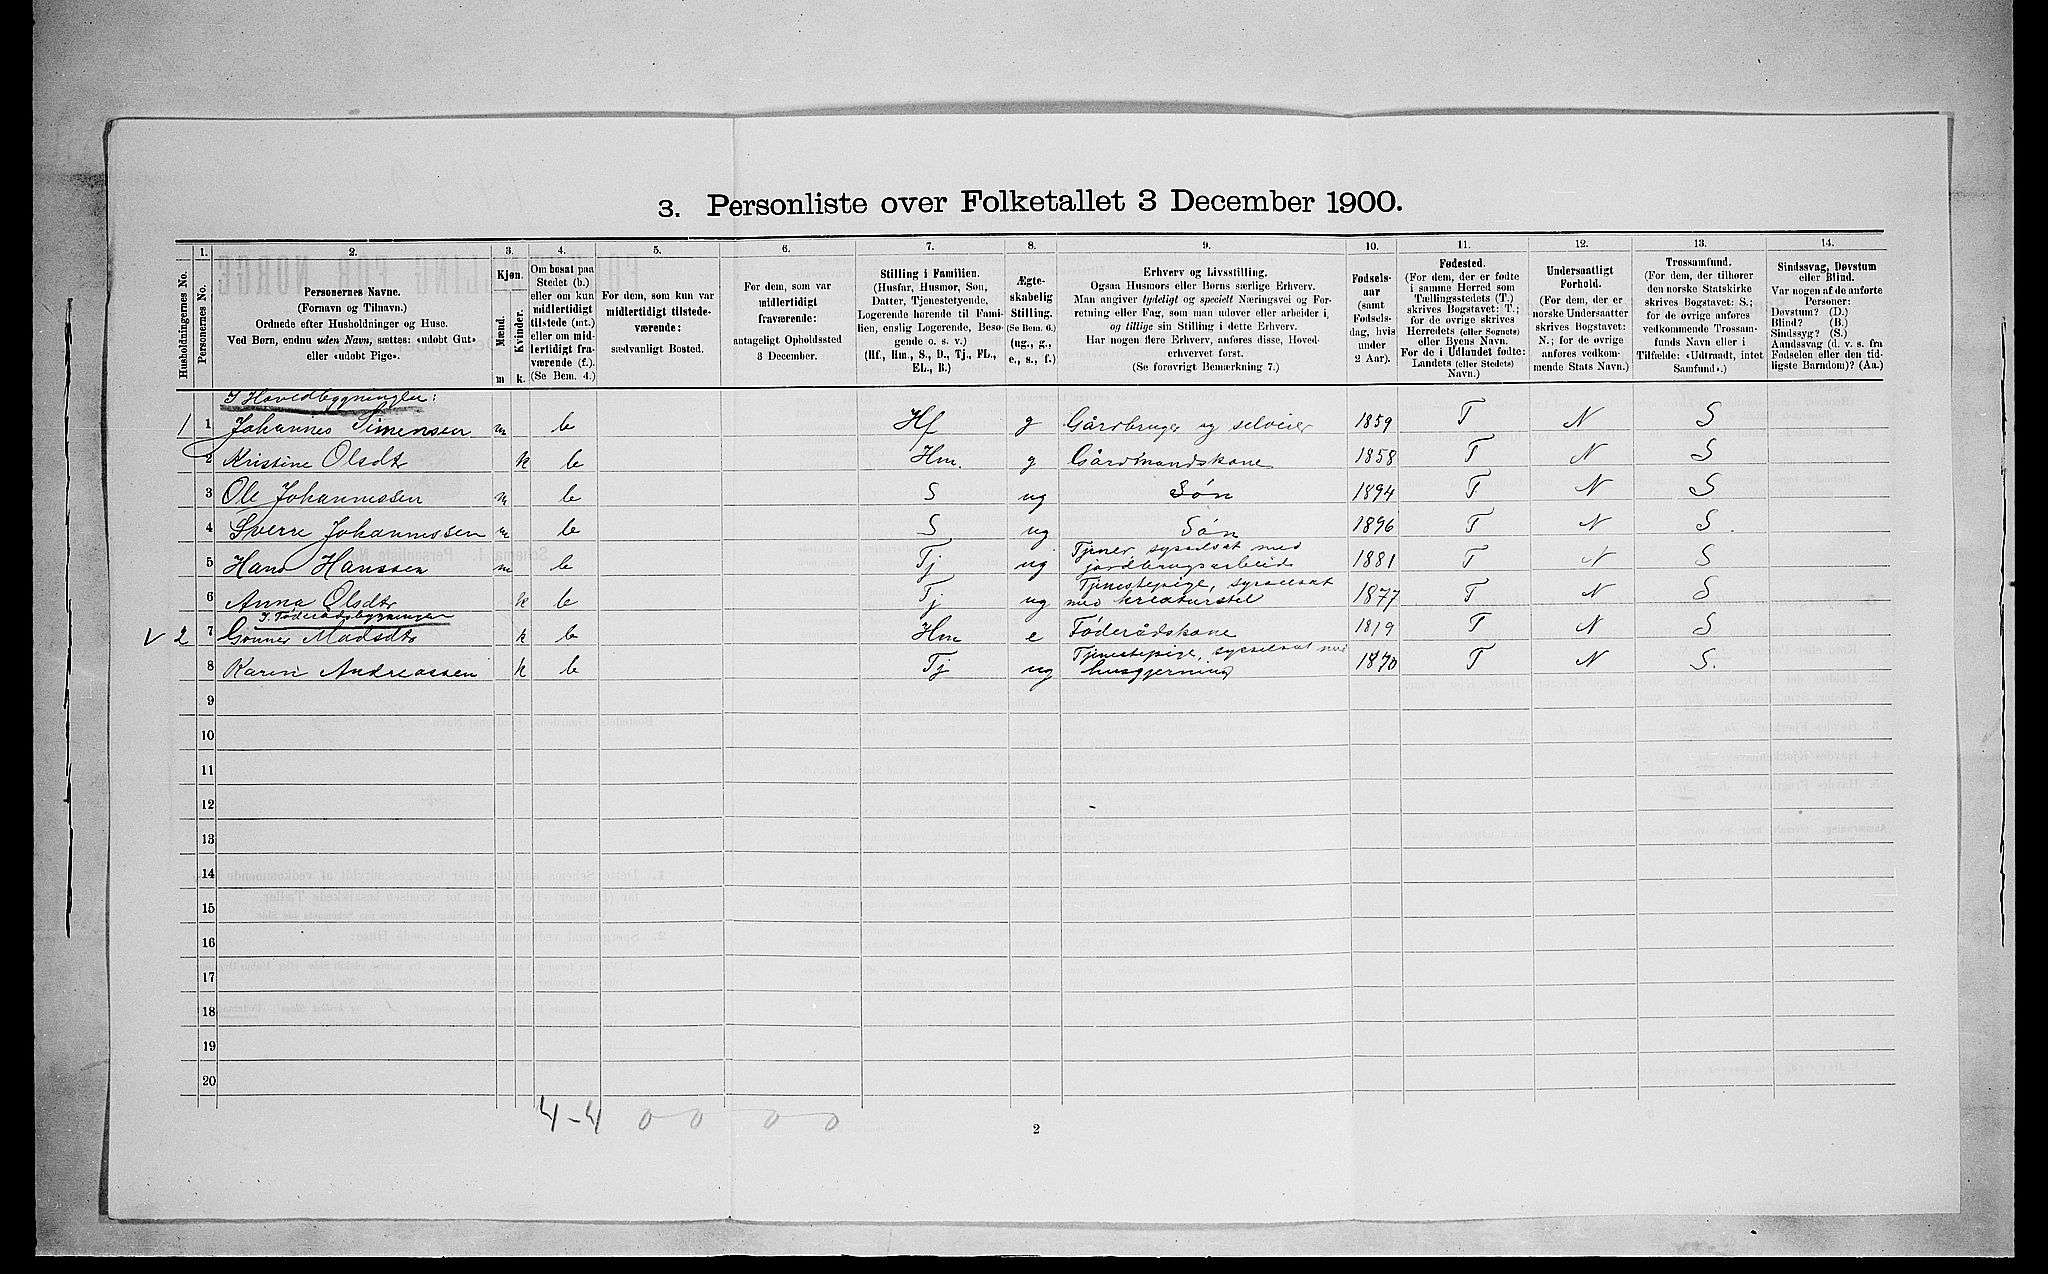 3. Personliste over Folketallet 3 December 1900.
1. 2. 3. 4. 5. 6. 7. 8. 9. 10. 11. 12. 13. 14.
Husholdningernes No.
Personernes No.
Personernes Navne.
(Fornavn og Tilnavn.)
Ordnede efter Husholdninger og Huse.
Ved Børn, endnu uden Navn, sættes: «udøbt Gut»
eller «udøbt Pige».
Kjøn.
Mænd.
Kvinder.
m k.
Om bosat paa
Stedet (b.)
eller om kun
midlertidigt
tilstede (mt.)
eller om mid-
lertidigt fra-
værende (f.).
(Se Bem. 4.)
For dem, som kun var
midlertidigt tilstede-
værende:
sædvanligt Bosted.
For dem, som var
midlertidigt
fraværende:
antageligt Opholdssted
3 December.
Stilling i Familien.
(Husfar, Husmor, Søn,
Datter, Tjenestetyende,
Logerende hørende til Fami-
lien, enslig Logerende, Besø-
gende o. s. v.)
(Hf., Hm., S., D., Tj., FL.,
EL., B.)
Ægte-
skabelig
Stilling.
(Se Bem. 6.)
(ug., g.,
e., s., f.)
Erhverv og Livsstilling.
Ogsaa Husmors eller Børns særlige Erhverv.
Man angiver tydeligt og specielt Næringsvei og For-
retning eller Fag, som man udøver eller arbeider i,
og tillige sin Stilling i dette Erhverv.
Har nogen flere Erhverv, anføres disse, Hoved-
erhvervet først.
(Se forøvrigt Bemærkning 7.)
Fødsels-
aar
(samt
Fødsels-
dag, hvis
under
2 Aar).
Fødested.
(For dem, der er fødte
i samme Herred som
Tællingsstedets (T.)
skrives Bogstavet: T.;
for de øvrige skrives
Herredets (eller Sognets)
eller Byens Navn.
For de i Udlandet fødte:
Landets (eller Stedets)
Navn.)
Undersaatligt
Forhold.
(For dem, der er
norske Undersaatter
skrives Bogstavet:
N.; for de øvrige
anføres vedkom-
mende Stats Navn.)
Trossamfund.
(For dem, der tilhører
den norske Statskirke
skrives Bogstavet: S.;
for de øvrige anføres
vedkommende Trossam-
funds Navn eller i
Tilfælde: «Udtraadt, intet
Samfund».)
Sindssvag, Døvstum
eller Blind.
Var nogen af de anførte
Personer:
Døvstum? (D.)
Blind? (B.)
Sindssyg? (S.)
Aandssvag (d. v. s. fra
Fødselen eller den tid-
ligste Barndom)? (Aa.)
I Hovedbygningen:
1 1 Johannes Simensen m b Hf g Gårdbruger og selveier 1859 T N S
2 Kristine Olsdtr k b Hm. g Gårdmandskone 1858 T N S
3 Ole Johannessen m b S ug Søn 1894 T N S
4 Sverre Johannessen m b S ug Søn 1896 T N S.
5 Hans Hanssen m b Tj ug Tjener, sysselsat med jordbrugsarbeide 1881 T N S
6 Anna Olsdtr k b Tj ug Tjenestepige, sysselsat med kreaturstel 1877 T N S
I Føderådsbygningen
V 2 7 Gonner Madsdtr k b Hm e Føderådskone 1819 T N S
8 Karen Andreassen k b Tj ug Tjenestepige, sysselsat med husgjerning 1870 T N S.
9
10
11
12
13
14
15
16
17
18
19
20
4-4 0 0 0 0
2